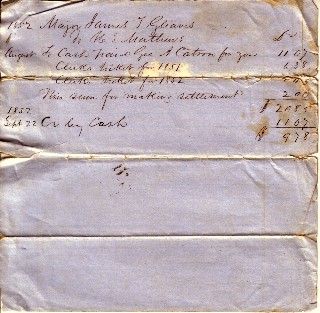 1852 Major James T Gleaves
To R. E. Matthews $
August To Cash paid Geo. A Catron for you 11.07
Clerks ticket for 1851 1.38
Clerks ticket for 1852
This sum for making settlement 2.00
$ 20.85
1852
Sept 22 Cr by Cash 11.07
$ 9.78